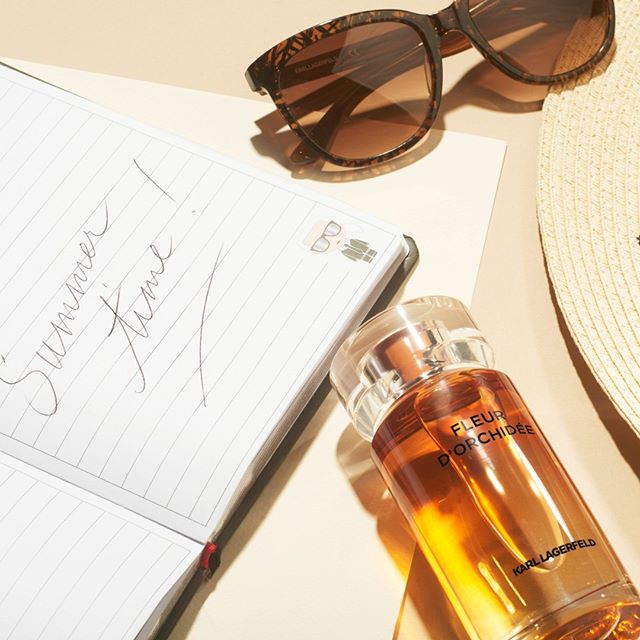 KARL LAGERFELD
Summer
time!
FLEUR
D'ORCHIDÉE
KARL LAGERFELD